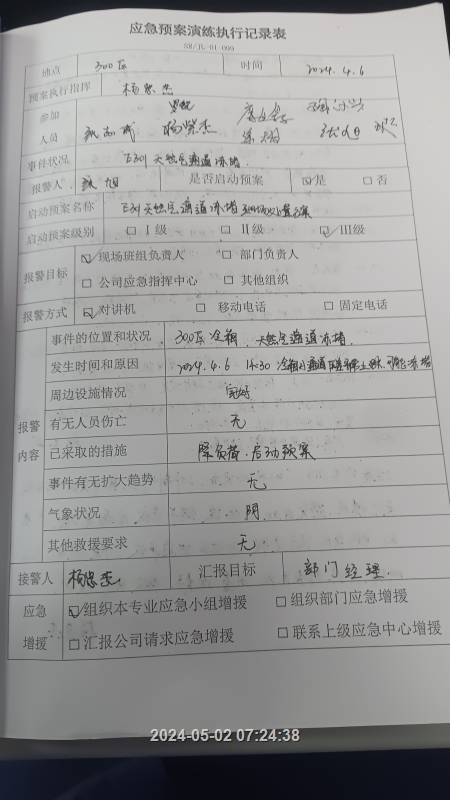 应急预案演练执行记录表
SR/JL-01-099
地点 300区 时间 2024.4.6
预案执行指挥 杨崇杰
参加
人员 杨崇杰
事件状况 E301 天然气通道冻堵
报警人 旭 是否启动预案 ☑是 □否
启动预案名称 E301天然气通道冻堵现场处置方案
启动预案级别 □Ⅰ级 □Ⅱ级 ☑Ⅲ级
报警目标 ☑现场班组负责人 □部门负责人
□公司应急指挥中心 □其他组织
报警方式 ☑对讲机 □移动电话 □固定电话
报警
内容
事件的位置和状况 300区冷箱,天然气通道冻堵.
发生时间和原因 2024.4.6 14:30 冷箱 通道 冻堵
周边设施情况 完好
有无人员伤亡 无
已采取的措施 降负荷.启动预案
事件有无扩大趋势 无
气象状况 阴
其他救援要求 无.
接警人 杨崇杰 汇报目标 部门经理.
应急
增援
☑组织本专业应急小组增援 □组织部门应急增援
□汇报公司请求应急增援 □联系上级应急中心增援
2024-05-02 07:24:38